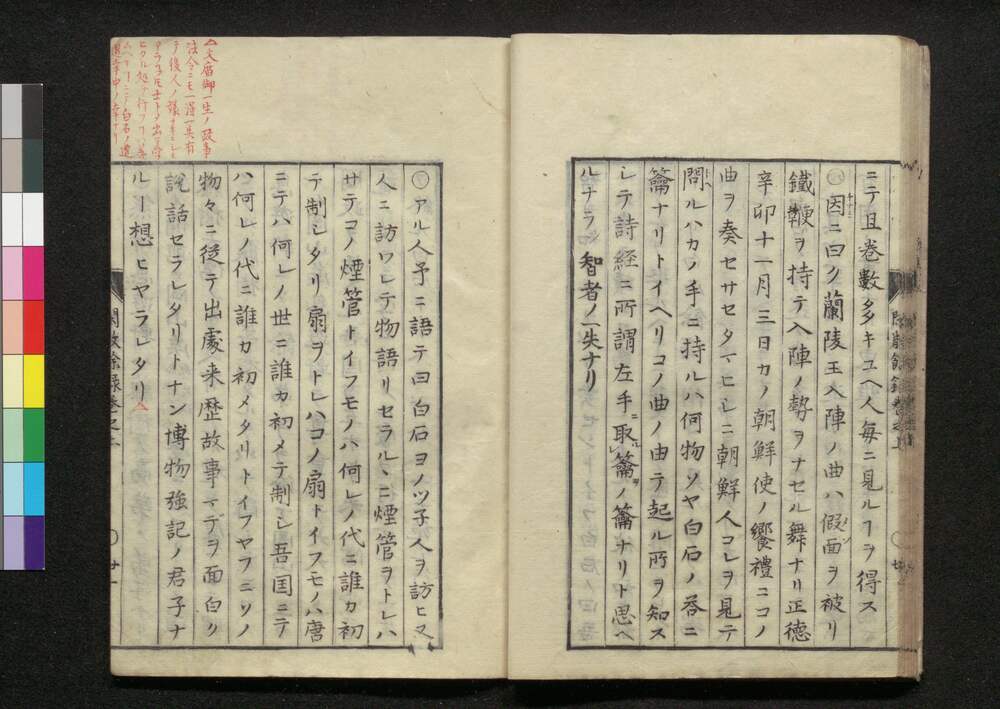 ニテ且巻數多キユヘ人毎ニ見ルヿヲ得ス
○因ニ曰ク蘭陵王入陣ノ曲ハ假面ヲ被リ
鐵鞭ヲ持テ入陣ノ勢ヲナセル舞ナリ正德
辛卯十一月三日カノ朝鮮使ノ饗禮ニコノ
曲ヲ奏セサセタマヒシニ朝鮮人コレヲ見テ
問ルハカノ手ニ持ルハ何物ソヤ白石ノ荅ニ
籥ナリトイヘリコノ曲ノ由テ起ル所ヲ知ス
シテ詩経ニ所謂左手ニ取ルレ籥ヲノ籥ナリト思ヘ
ルナラン智者ノ一失ナリ
○アル人予ニ語テ曰白石ヨノツ子人ヲ訪ヒ又
人ニ訪ワレテ物語リセラルヽニ煙管ヲトレハ
サテコノ煙管トイフモノハ何レノ代ニ誰カ初
テ制シタリ扇ヲトレハコノ扇トイフモノハ唐
ニテハ何レノ世ニ誰カ初メテ制シ吾国ニテ
ハ何レノ代ニ誰カ初メタリトイフヤフニソノ
物々ニ従テ出處来歴故事マデヲ面白ク
説話セラレタリトナン博物強記ノ君子ナ
ルヿ想ヒヤラレタリ△
△文廟御一生ノ政事
法令ニモ一淫一具有
テ後人ノ議
閑散余録巻之上
廿一